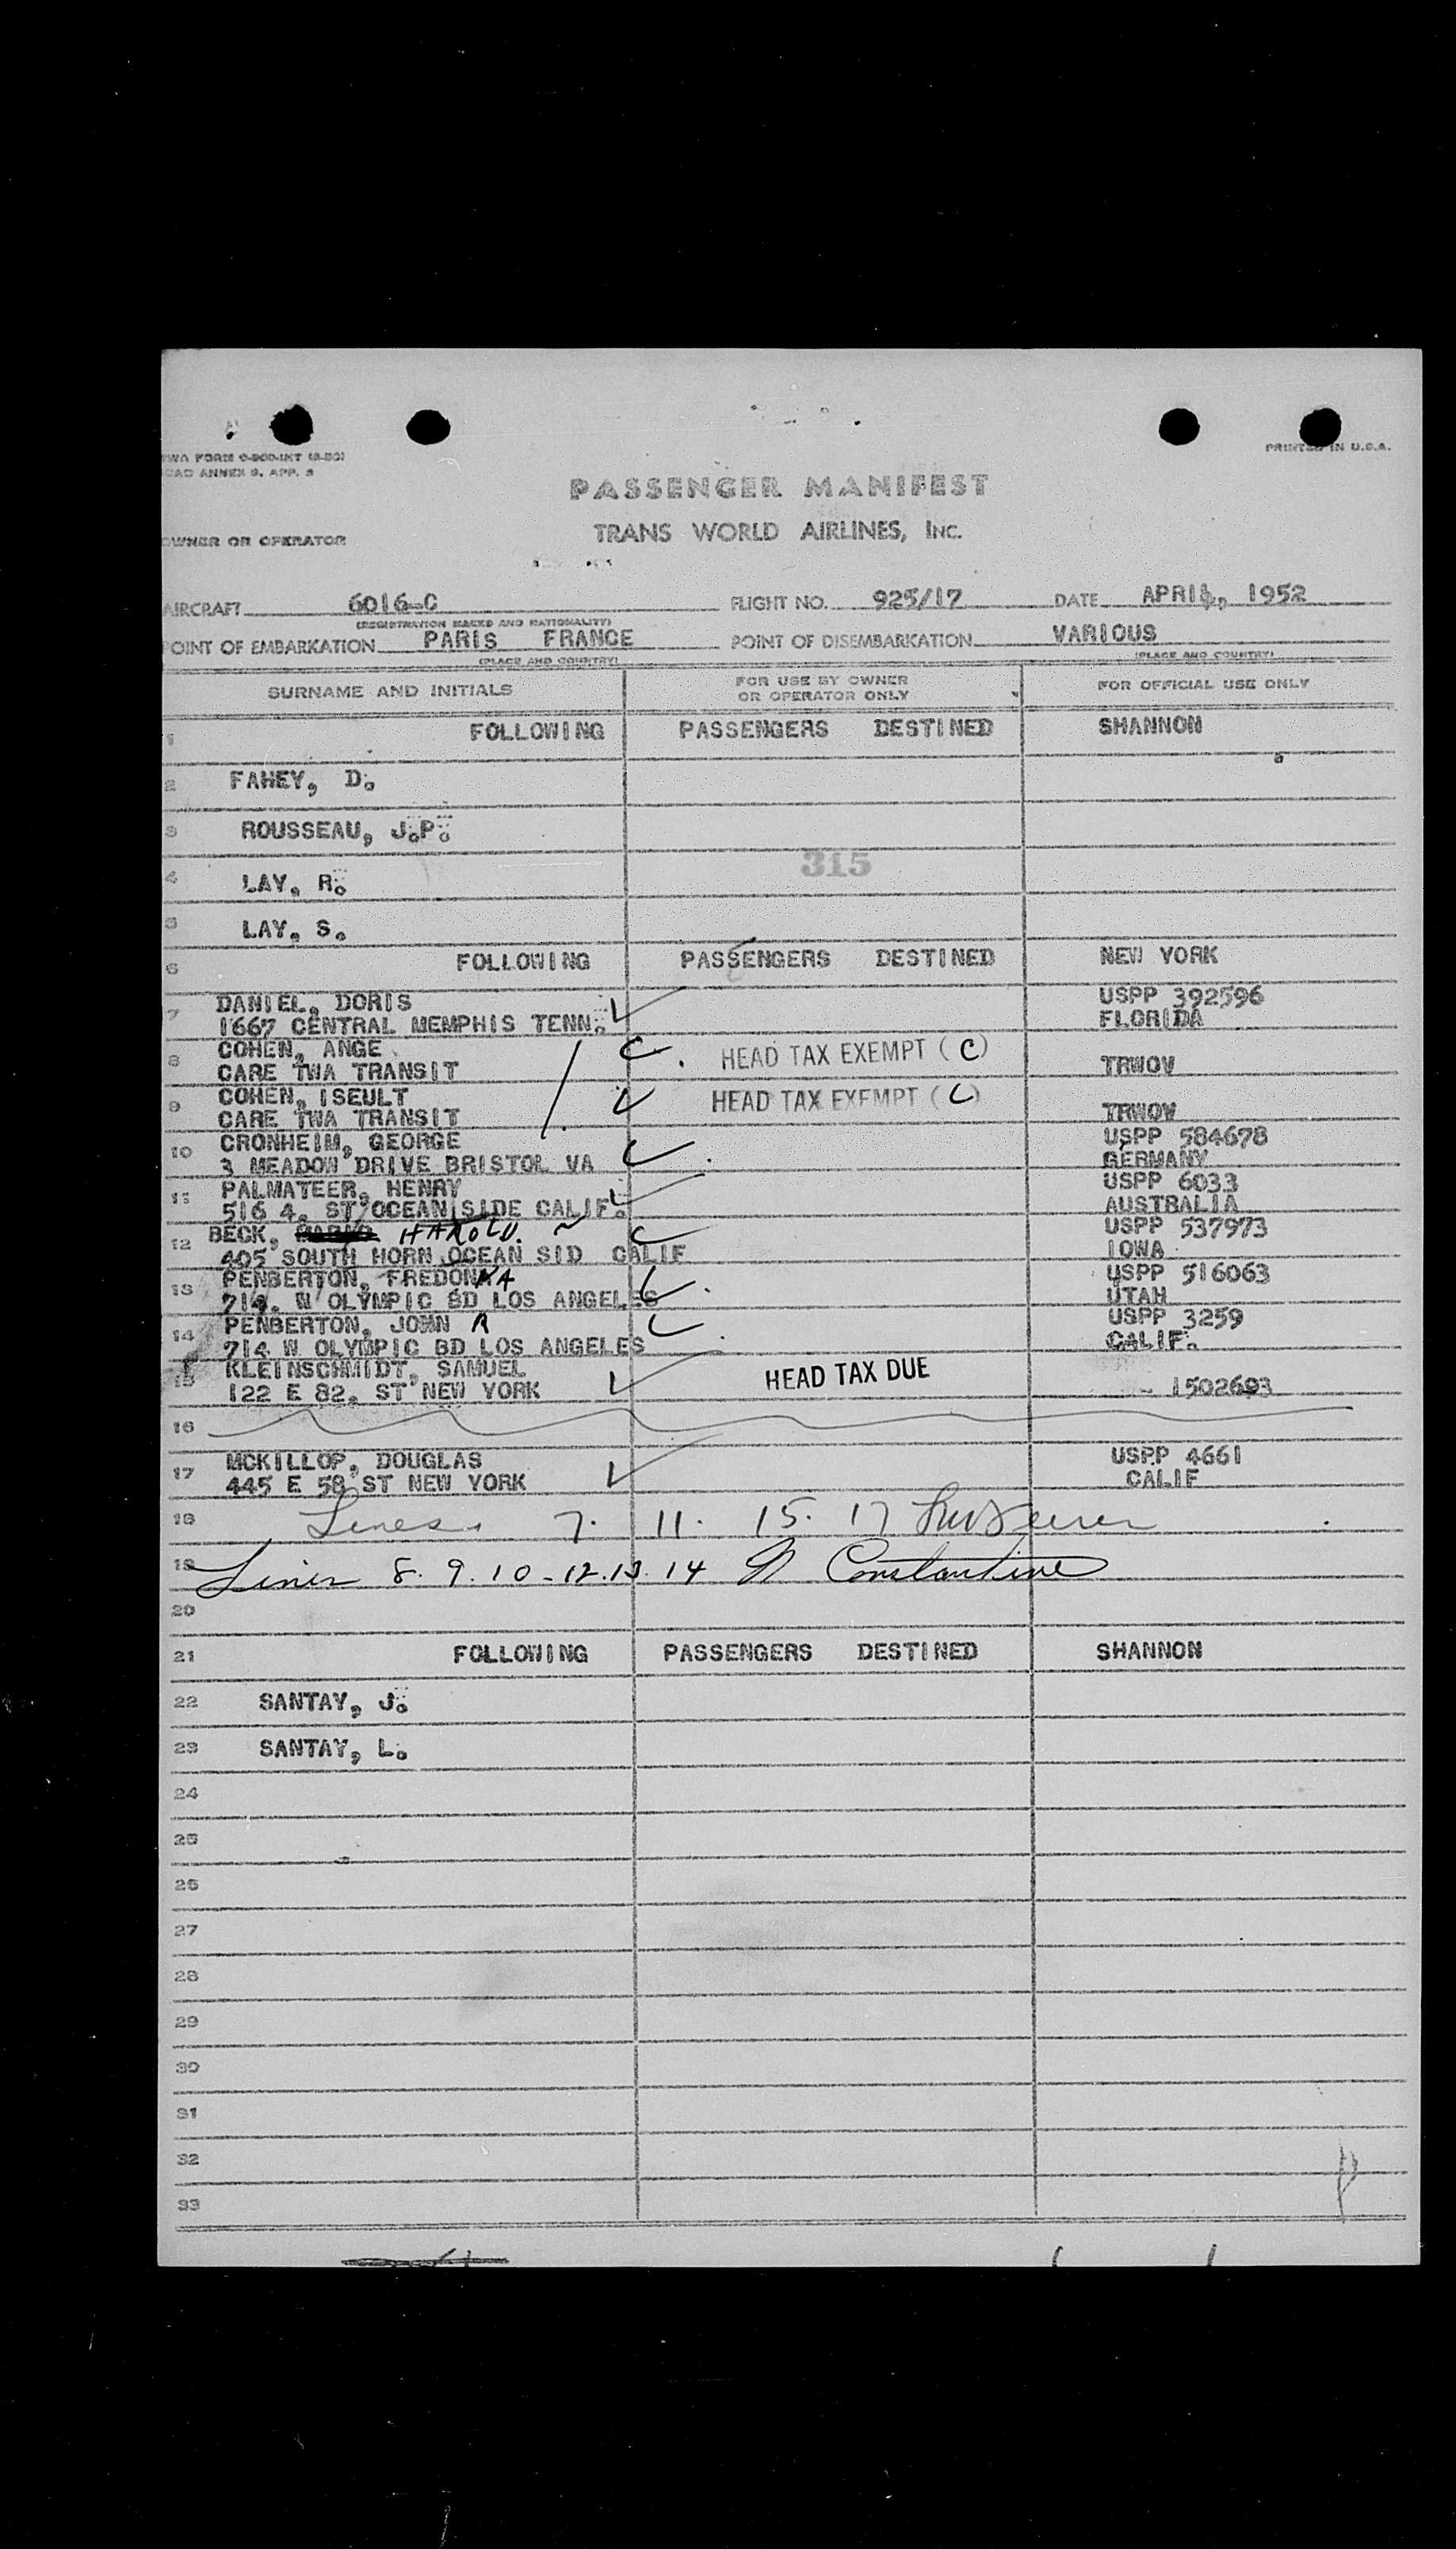 TWA FORM O-900-INT (8-50)
ICAO ANNEX 9, APP. 3
PRINTED IN U.S.A.
PASSENGER MANIFEST
TRANS WORLD AIRLINES, INC.
OWNER OR OPERATOR
AIRCRAFT 6016-C FLIGHT NO. 925/17 DATE APRIL, 1952
(REGISTRATION MARKS AND NATIONALITY)
POINT OF EMBARKATION PARIS FRANCE POINT OF DISEMBARKATION VARIOUS
(PLACE AND COUNTRY) (PLACE AND COUNTRY)
SURNAME AND INITIALS FOR USE BY OWNER OR OPERATOR ONLY FOR OFFICIAL USE ONLY
1 FOLLOWING PASSENGERS DESTINED SHANNON
2 FAHEY, D.
3 ROUSSEAU, J.P.
315
4 LAY, R.
5 LAY, S.
6 FOLLOWING PASSENGERS DESTINED NEW YORK
7 DANIEL, DORIS USPP 392596
1667 CENTRAL MEMPHIS TENN. FLORIDA
8 COHEN, ANGE HEAD TAX EXEMPT (C)
CARE TWA TRANSIT TRWOV
9 COHEN, ISEULT HEAD TAX EXEMPT (C)
CARE TWA TRANSIT TRWOV
10 CRONHEIM, GEORGE USPP 584678
3 MEADOW DRIVE BRISTOL VA GERMANY
11 PALMATEER, HENRY USPP 6033
516 4. ST OCEAN SIDE CALIF. AUSTRALIA
12 BECK, HAROLD. USPP 537973
405 SOUTH HORN OCEAN SID CALIF IOWA
13 PENBERTON, FREDONNA USPP 516063
714. W OLYMPIC BD LOS ANGELES UTAH
14 PENBERTON, JOHN R USPP 3259
714 W OLYMPIC BD LOS ANGELES CALIF.
15 KLEINSCHMIDT, SAMUEL HEAD TAX DUE
122 E 82. ST NEW YORK 1502693
16
17 MCKILLOP, DOUGLAS USPP 4661
445 E 58 ST NEW YORK CALIF
18 Lines 7. 11. 15. 17
19 Lines 8. 9. 10 - 12. 13. 14 Constantine
20
21 FOLLOWING PASSENGERS DESTINED SHANNON
22 SANTAY, J.
23 SANTAY, L.
24
25
26
27
28
29
30
31
32
33